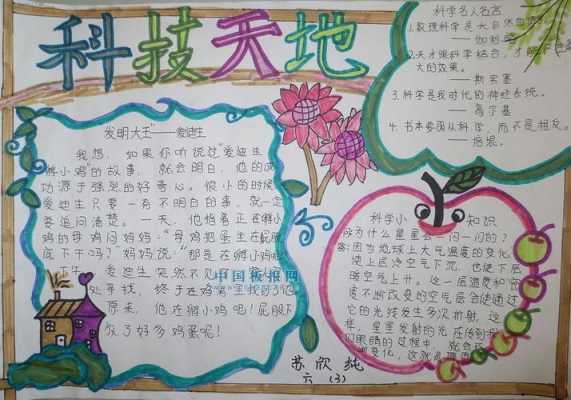 科技天地
科学名人名言
1.数理科学是大自然
——伽利略
2.天才跟科学结合，才能
大的效果。
——斯宾塞
3.科学是我时代的神经系统。
——高尔基
4.书本要围从科学，而不是相反。
——培根。
发明大王"——爱迪生
我想，如果你听说过"爱迪生
孵小鸡"的故事，就会明白，他的成
功源于强烈的好奇心。很小的时候
爱迪生只要一有不明白的事，就一定
要追问清楚。一天，他指着正在孵小
鸡的母鸡问妈妈："母鸡把蛋坐在屁股
底下干吗？"妈妈说："那是在孵小鸡呢
下午，爱迪生突然不见
处寻找，终于在鸡窝里找到了他
原来，他在孵小鸡吧！屁股下
放了好多鸡蛋呢！
中国板报网
科学小知识
问为什么星星会一闪一闪的？
答:因为地球上大气温度的变化
使上层冷空气下沉，也使下层
暖空气上升。这一层温度和密
度不断改变的空气层会使通过
它的光线发生多次折射，这
样，星星发射的光在传到
们眼睛的过程中，就会
变化，这就
苏欣纯
六（3）